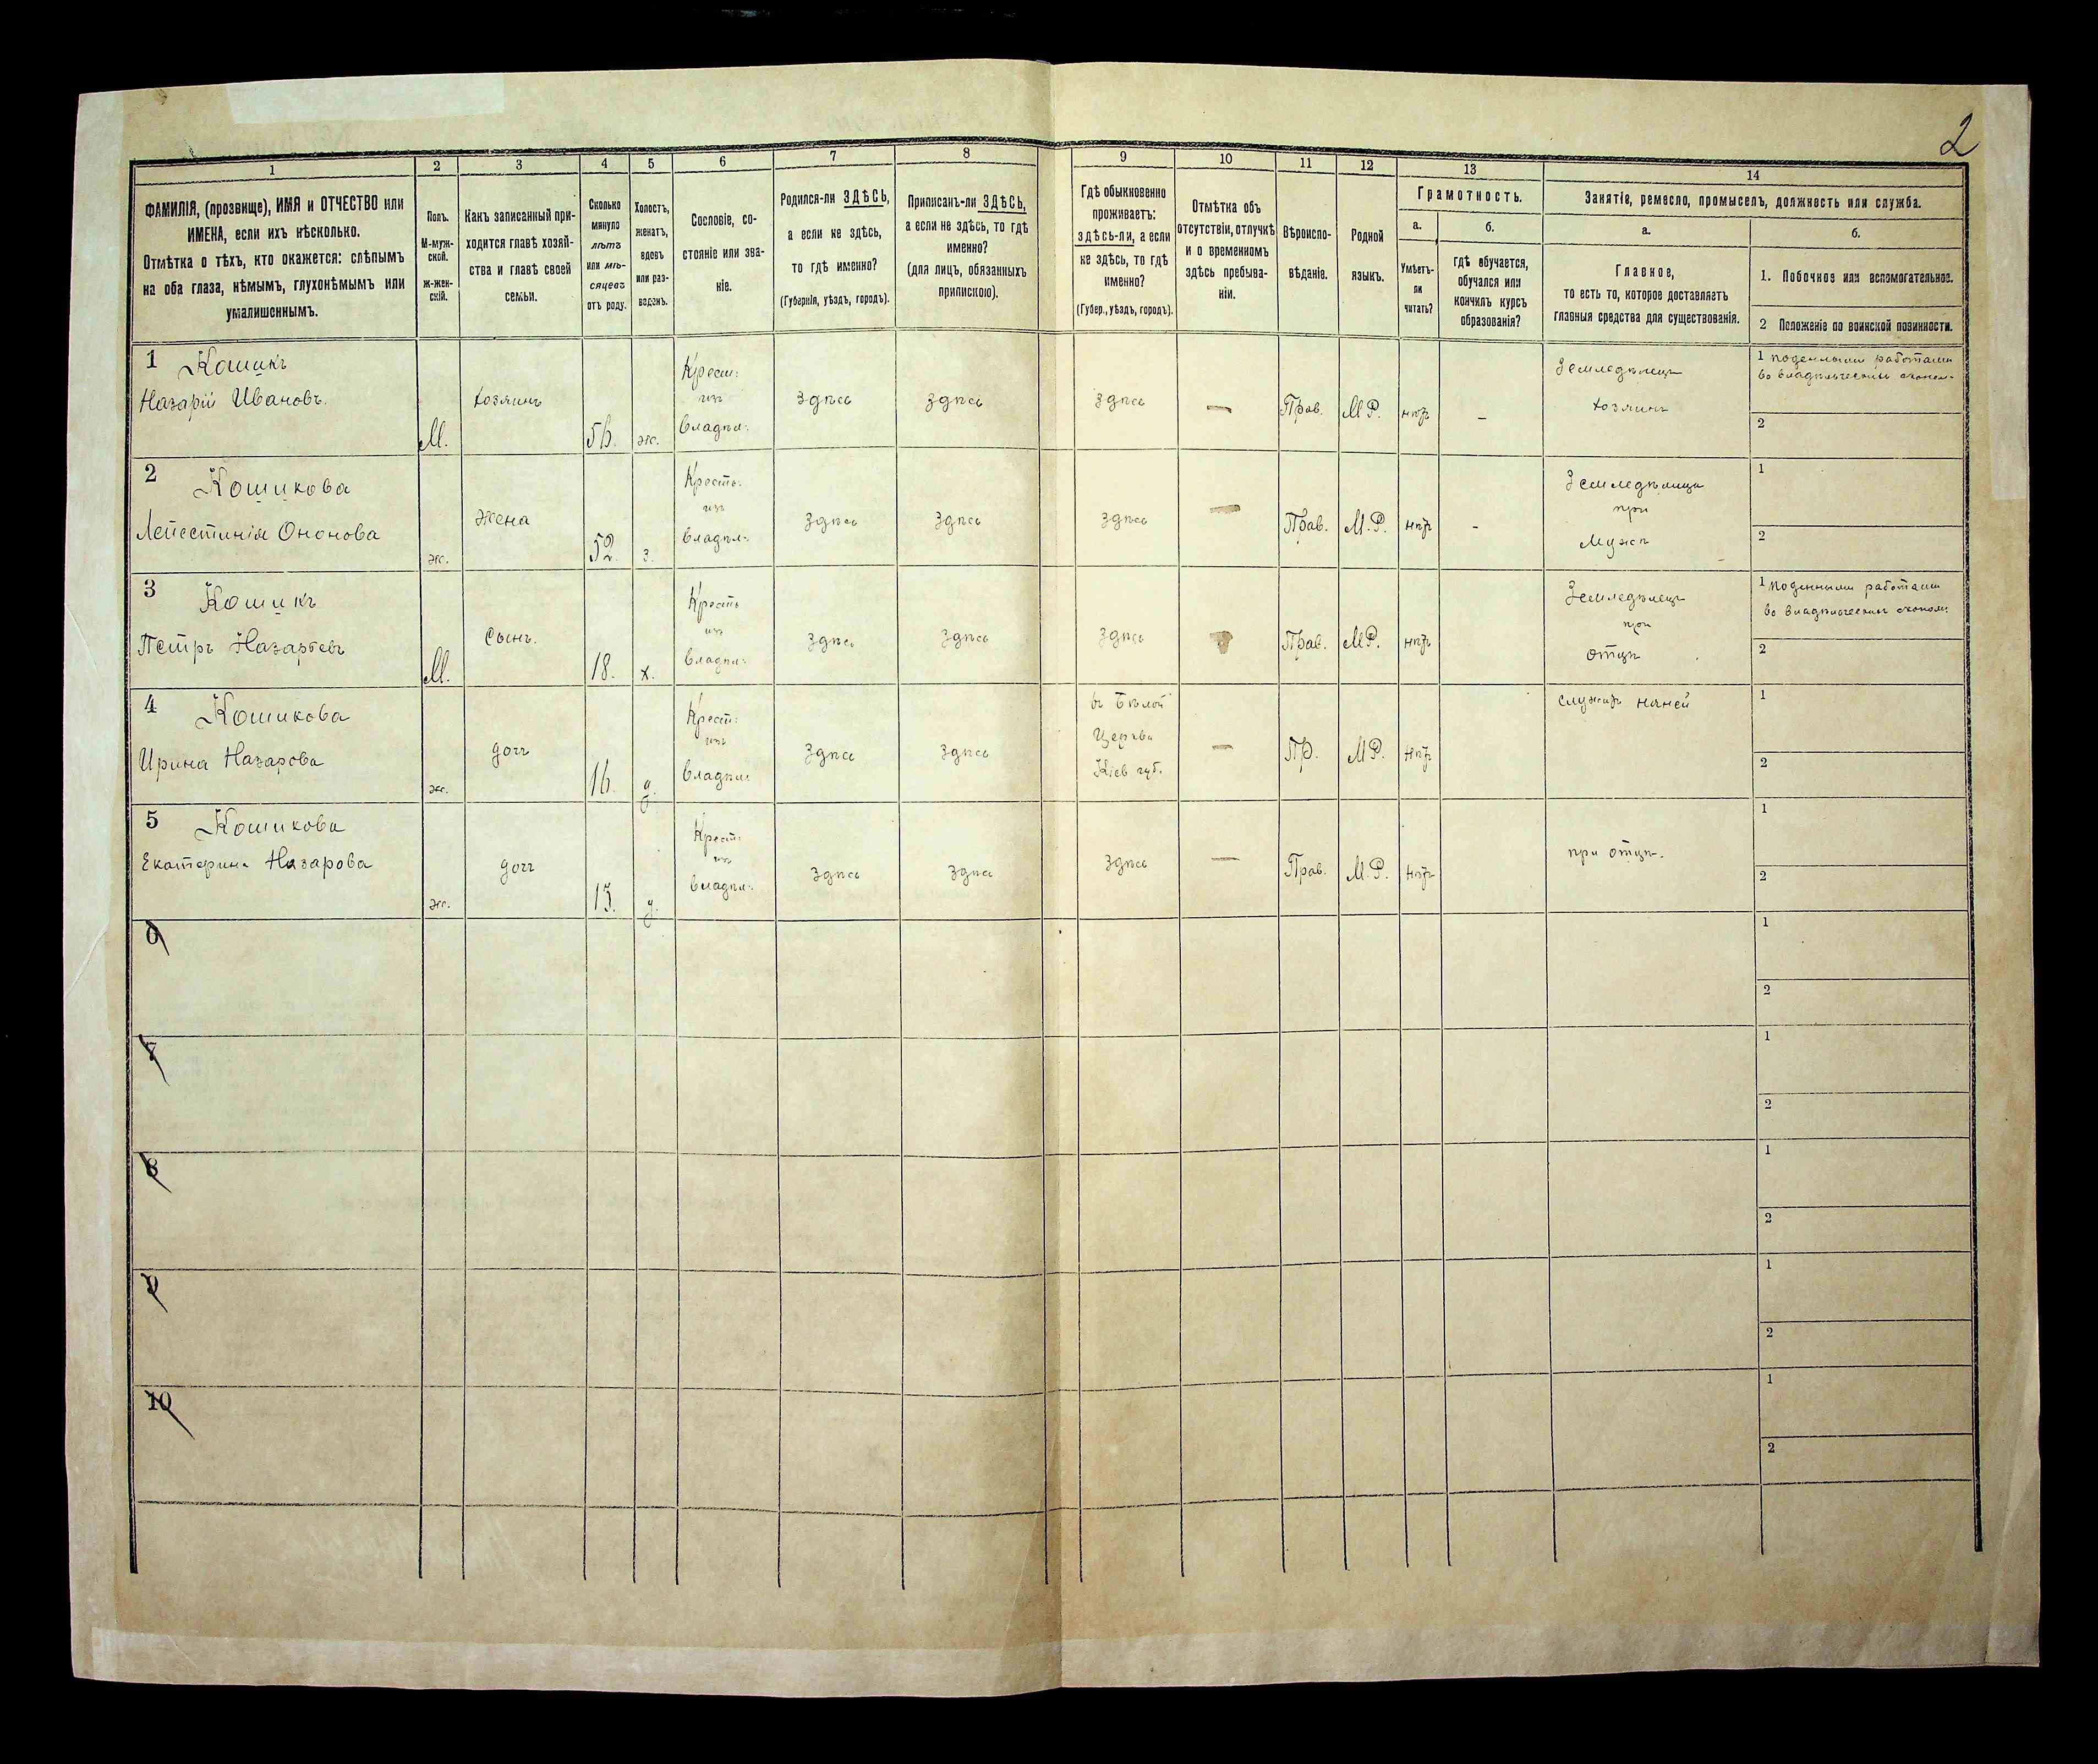 2
1 2 3 4 5 6 7 8 9 10 11 12 13 14
ФАМИЛІЯ, (прозвище), ИМЯ и ОТЧЕСТВО или
ИМЕНА, если ихъ нѣсколько.
Отмѣтка о тѣхъ, кто окажется: слѣпымъ
на оба глаза, нѣмымъ, глухонѣмымъ или
умалишеннымъ.
Полъ.
М-муж-
ской.
ж-жен-
скій.
Какъ записанный при-
ходится главѣ хозяй-
ства и главѣ своей
семьи.
Сколько
минуло
лѣтъ
или мѣ-
сяцевъ
отъ роду.
Холостъ,
женатъ,
вдовъ
или раз-
веденъ.
Сословіе, со-
стояніе или зва-
ніе.
Родился-ли ЗДѢСЬ,
а если не здѣсь,
то гдѣ именно?
(Губернія, уѣздъ, городъ).
Приписанъ-ли ЗДѢСЬ,
а если не здѣсь, то гдѣ
именно?
(для лицъ, обязанныхъ
припискою).
Гдѣ обыкновенно
проживаетъ:
здѣсь-ли, а если
не здѣсь, то гдѣ
именно?
(Губер., уѣздъ, городъ).
Отмѣтка объ
отсутствіи, отлучкѣ
и о временномъ
здѣсь пребыва-
ніи.
Вѣроиспо-
вѣданіе.
Родной
языкъ.
Грамотность.
а.
Умѣетъ-
ли
читать?
б.
гдѣ обучается,
обучался или
кончилъ курсъ
образованія?
Занятіе, ремесло, промыселъ, должность или служба.
а.
Главное,
то есть то, которое доставляетъ
главныя средства для существованія.
б.
1. Побочное или вспомогательное.
2 Положеніе по воинской повинности.
1 Кошикъ
Назарій Ивановъ.
М.
хозяинъ
56.
ж.
Крест:
изъ
владѣл:
здѣсь
здѣсь
здѣсь
—
Прав.
М Р.
нѣтъ
–
Земледѣлецъ
хозяинъ
1 поденными работами
во владѣльческихъ эконом-
2
2 Кошикова
Ононова
ж.
жена
52.
з.
Кресть:
изъ
владѣл:
здѣсь
здѣсь
здѣсь
—
Прав.
М. Р.
нѣтъ
-
Земледѣлица
при
мужѣ
1
2
3 Кошикъ
Петръ Назарьевъ
М.
Сынъ.
18.
х.
Кресть
изъ
владѣл:
здѣсь
здѣсь
здѣсь
Прав.
М Р.
нѣтъ
Земледѣлецъ
при
отцѣ
1 поденными работами
во владѣльческихъ эконом:
2
4 Кошикова
Ирина Назарова
ж.
дочь
16.
д.
Крест:
изъ
владѣл:
здѣсь
здѣсь
въ Бѣлой
Церкви
Кіев губ.
—
Пр.
М Р.
нѣтъ
служитъ няней
1
2
5 Кошикова
Екатерина Назарова
ж.
дочь
13.
д.
Крест:
изъ
владѣл:
здѣсь
здѣсь
здѣсь
—
Прав.
М. Р.
нѣтъ
при отцѣ.
1
2
6
1
2
7
1
2
8
1
2
9
1
2
10
1
2